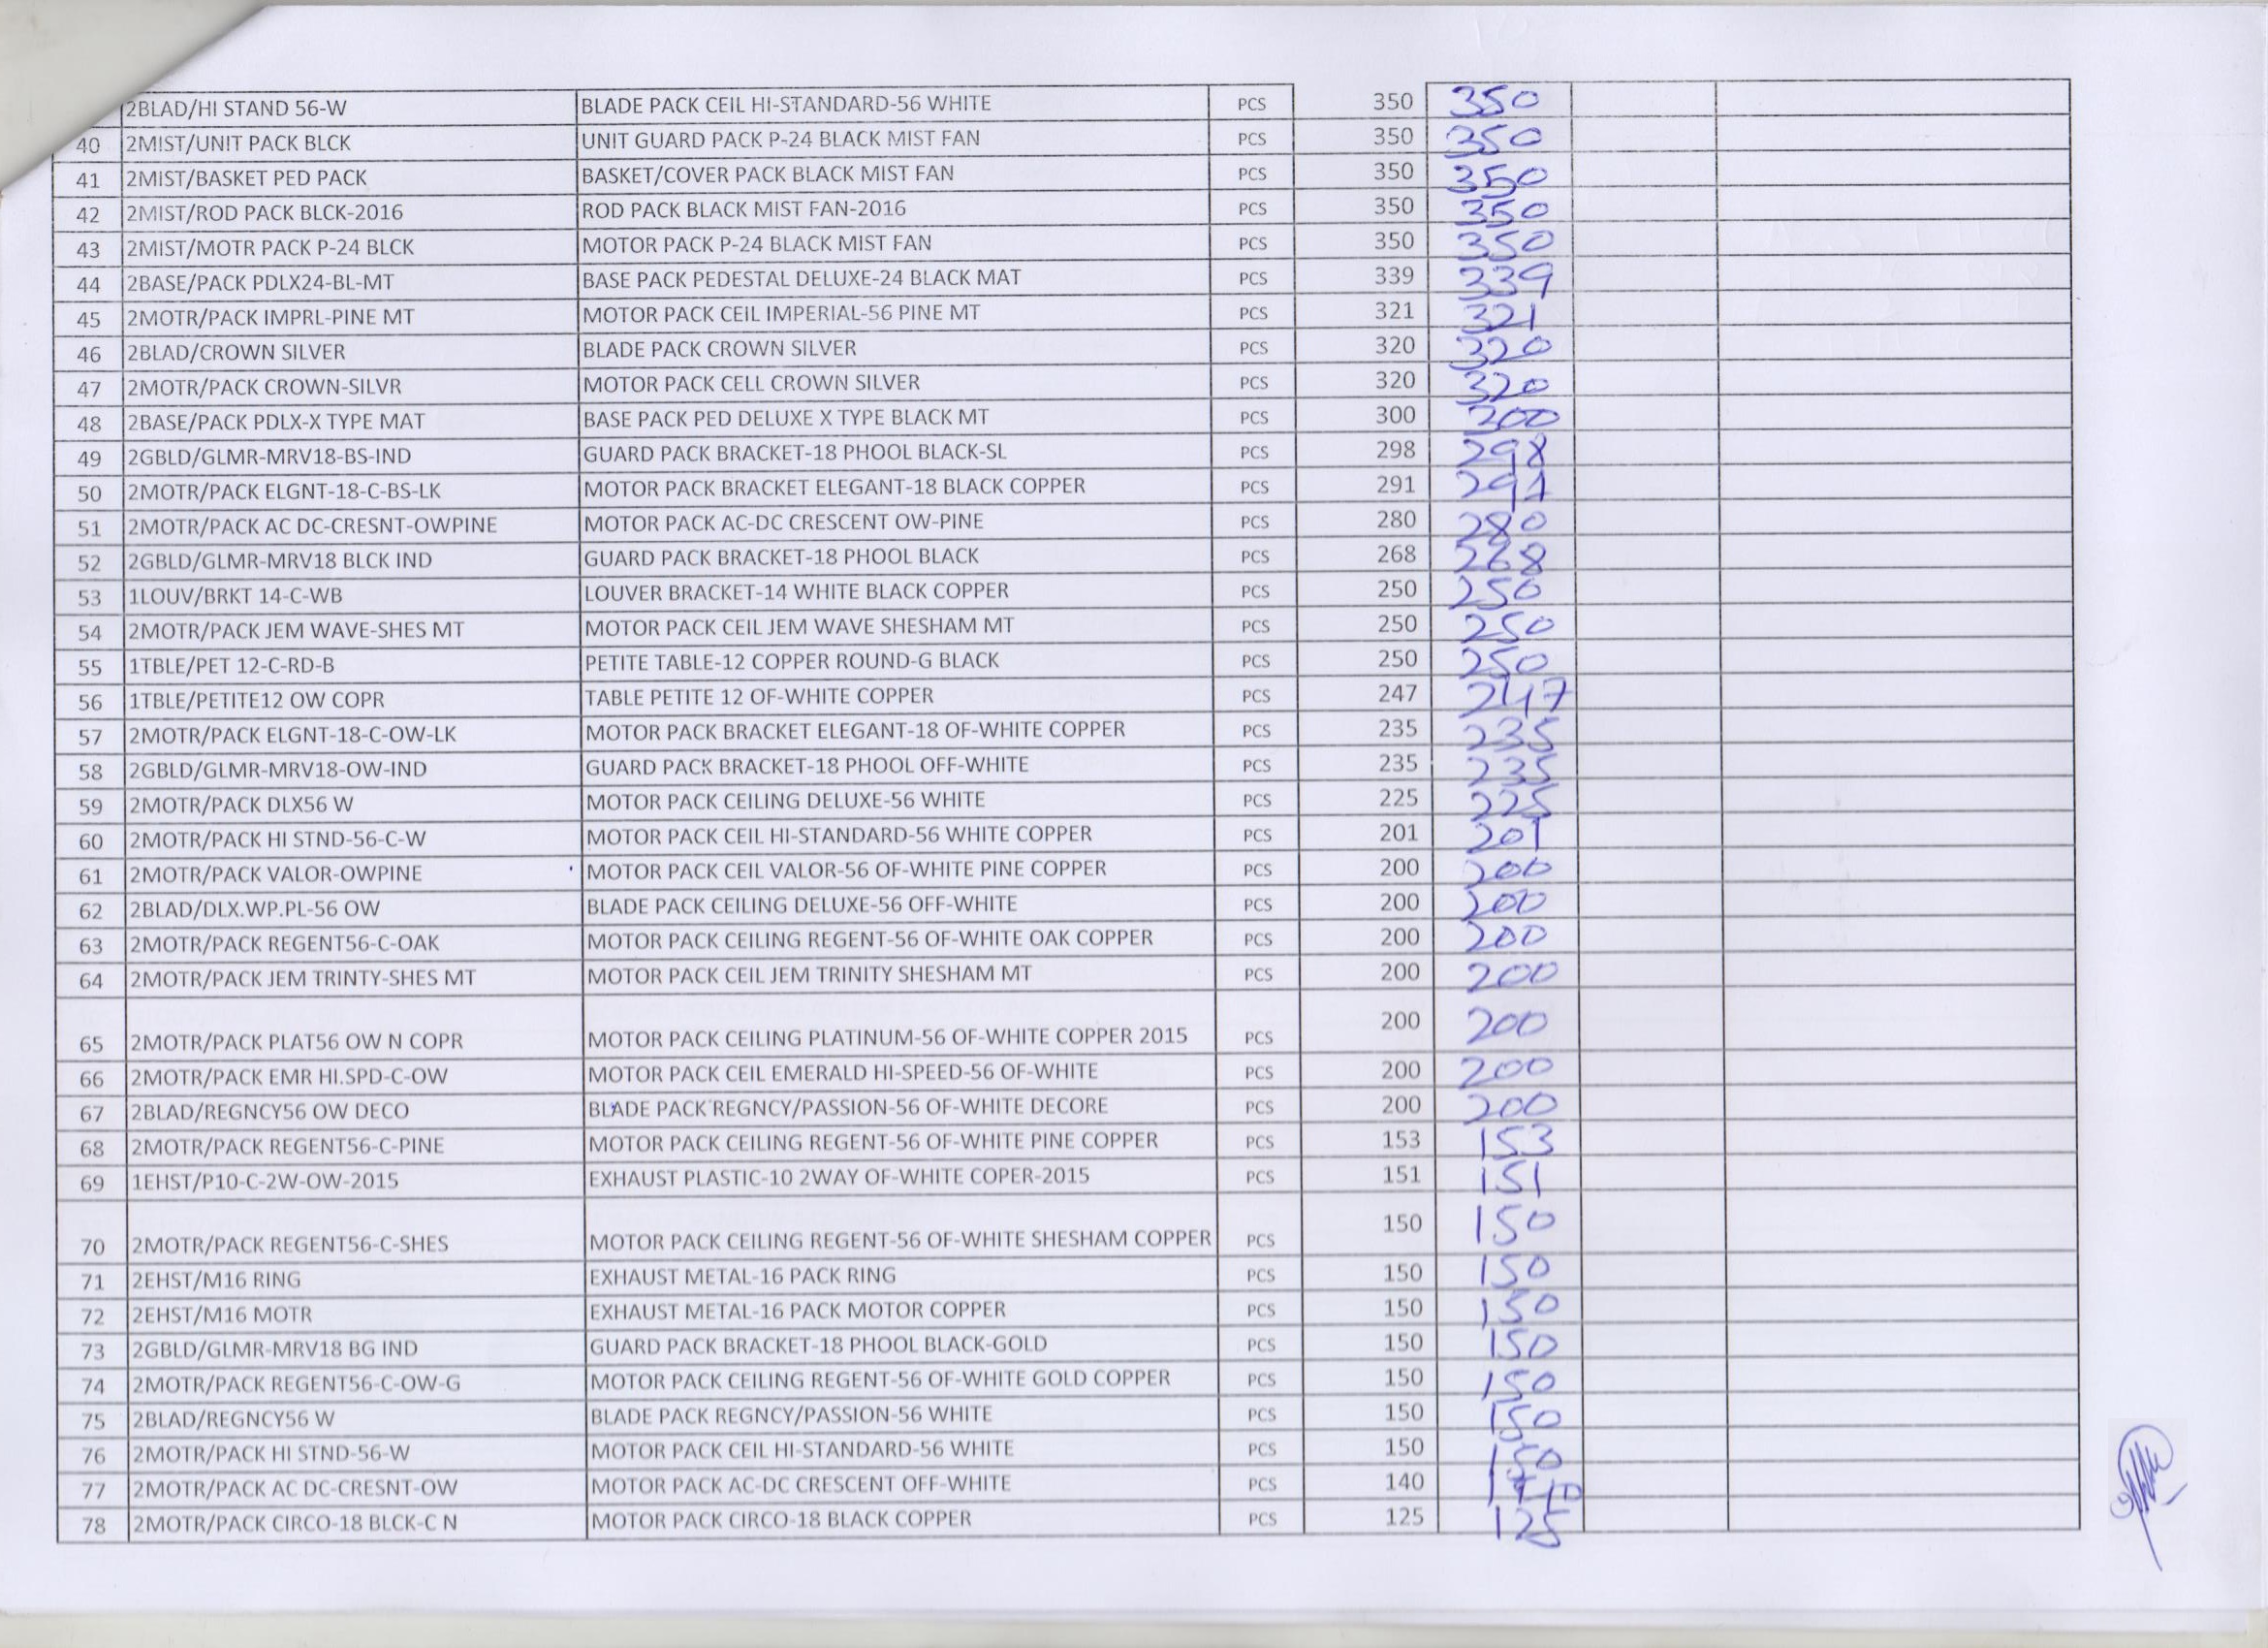 2BLAD/HI STAND 56-W BLADE PACK CEIL HI-STANDARD-56 WHITE PCS 350 350
40 2MIST/UNIT PACK BLCK UNIT GUARD PACK P-24 BLACK MIST FAN PCS 350 350
41 2MIST/BASKET PED PACK BASKET/COVER PACK BLACK MIST FAN PCS 350 350
42 2MIST/ROD PACK BLCK-2016 ROD PACK BLACK MIST FAN-2016 PCS 350 350
43 2MIST/MOTR PACK P-24 BLCK MOTOR PACK P-24 BLACK MIST FAN PCS 350 350
44 2BASE/PACK PDLX24-BL-MT BASE PACK PEDESTAL DELUXE-24 BLACK MAT PCS 339 339
45 2MOTR/PACK IMPRL-PINE MT MOTOR PACK CEIL IMPERIAL-56 PINE MT PCS 321 321
46 2BLAD/CROWN SILVER BLADE PACK CROWN SILVER PCS 320 320
47 2MOTR/PACK CROWN-SILVR MOTOR PACK CELL CROWN SILVER PCS 320 320
48 2BASE/PACK PDLX-X TYPE MAT BASE PACK PED DELUXE X TYPE BLACK MT PCS 300 300
49 2GBLD/GLMR-MRV18-BS-IND GUARD PACK BRACKET-18 PHOOL BLACK-SL PCS 298 298
50 2MOTR/PACK ELGNT-18-C-BS-LK MOTOR PACK BRACKET ELEGANT-18 BLACK COPPER PCS 291 291
51 2MOTR/PACK AC DC-CRESNT-OWPINE MOTOR PACK AC-DC CRESCENT OW-PINE PCS 280 280
52 2GBLD/GLMR-MRV18 BLCK IND GUARD PACK BRACKET-18 PHOOL BLACK PCS 268 268
53 1LOUV/BRKT 14-C-WB LOUVER BRACKET-14 WHITE BLACK COPPER PCS 250 250
54 2MOTR/PACK JEM WAVE-SHES MT MOTOR PACK CEIL JEM WAVE SHESHAM MT PCS 250 250
55 1TBLE/PET 12-C-RD-B PETITE TABLE-12 COPPER ROUND-G BLACK PCS 250 250
56 1TBLE/PETITE12 OW COPR TABLE PETITE 12 OF-WHITE COPPER PCS 247 247
57 2MOTR/PACK ELGNT-18-C-OW-LK MOTOR PACK BRACKET ELEGANT-18 OF-WHITE COPPER PCS 235 235
58 2GBLD/GLMR-MRV18-OW-IND GUARD PACK BRACKET-18 PHOOL OFF-WHITE PCS 235 235
59 2MOTR/PACK DLX56 W MOTOR PACK CEILING DELUXE-56 WHITE PCS 225 225
60 2MOTR/PACK HI STND-56-C-W MOTOR PACK CEIL HI-STANDARD-56 WHITE COPPER PCS 201 201
61 2MOTR/PACK VALOR-OWPINE MOTOR PACK CEIL VALOR-56 OF-WHITE PINE COPPER PCS 200 200
62 2BLAD/DLX.WP.PL-56 OW BLADE PACK CEILING DELUXE-56 OFF-WHITE PCS 200 200
63 2MOTR/PACK REGENT56-C-OAK MOTOR PACK CEILING REGENT-56 OF-WHITE OAK COPPER PCS 200 200
64 2MOTR/PACK JEM TRINTY-SHES MT MOTOR PACK CEIL JEM TRINITY SHESHAM MT PCS 200 200
65 2MOTR/PACK PLAT56 OW N COPR MOTOR PACK CEILING PLATINUM-56 OF-WHITE COPPER 2015 PCS 200 200
66 2MOTR/PACK EMR HI.SPD-C-OW MOTOR PACK CEIL EMERALD HI-SPEED-56 OF-WHITE PCS 200 200
67 2BLAD/REGNCY56 OW DECO BLADE PACK REGNCY/PASSION-56 OF-WHITE DECORE PCS 200 200
68 2MOTR/PACK REGENT56-C-PINE MOTOR PACK CEILING REGENT-56 OF-WHITE PINE COPPER PCS 153 153
69 1EHST/P10-C-2W-OW-2015 EXHAUST PLASTIC-10 2WAY OF-WHITE COPER-2015 PCS 151 151
70 2MOTR/PACK REGENT56-C-SHES MOTOR PACK CEILING REGENT-56 OF-WHITE SHESHAM COPPER PCS 150 150
71 2EHST/M16 RING EXHAUST METAL-16 PACK RING PCS 150 150
72 2EHST/M16 MOTR EXHAUST METAL-16 PACK MOTOR COPPER PCS 150 150
73 2GBLD/GLMR-MRV18 BG IND GUARD PACK BRACKET-18 PHOOL BLACK-GOLD PCS 150 150
74 2MOTR/PACK REGENT56-C-OW-G MOTOR PACK CEILING REGENT-56 OF-WHITE GOLD COPPER PCS 150 150
75 2BLAD/REGNCY56 W BLADE PACK REGNCY/PASSION-56 WHITE PCS 150 150
76 2MOTR/PACK HI STND-56-W MOTOR PACK CEIL HI-STANDARD-56 WHITE PCS 150 150
77 2MOTR/PACK AC DC-CRESNT-OW MOTOR PACK AC-DC CRESCENT OFF-WHITE PCS 140
78 2MOTR/PACK CIRCO-18 BLCK-C N MOTOR PACK CIRCO-18 BLACK COPPER PCS 125 125